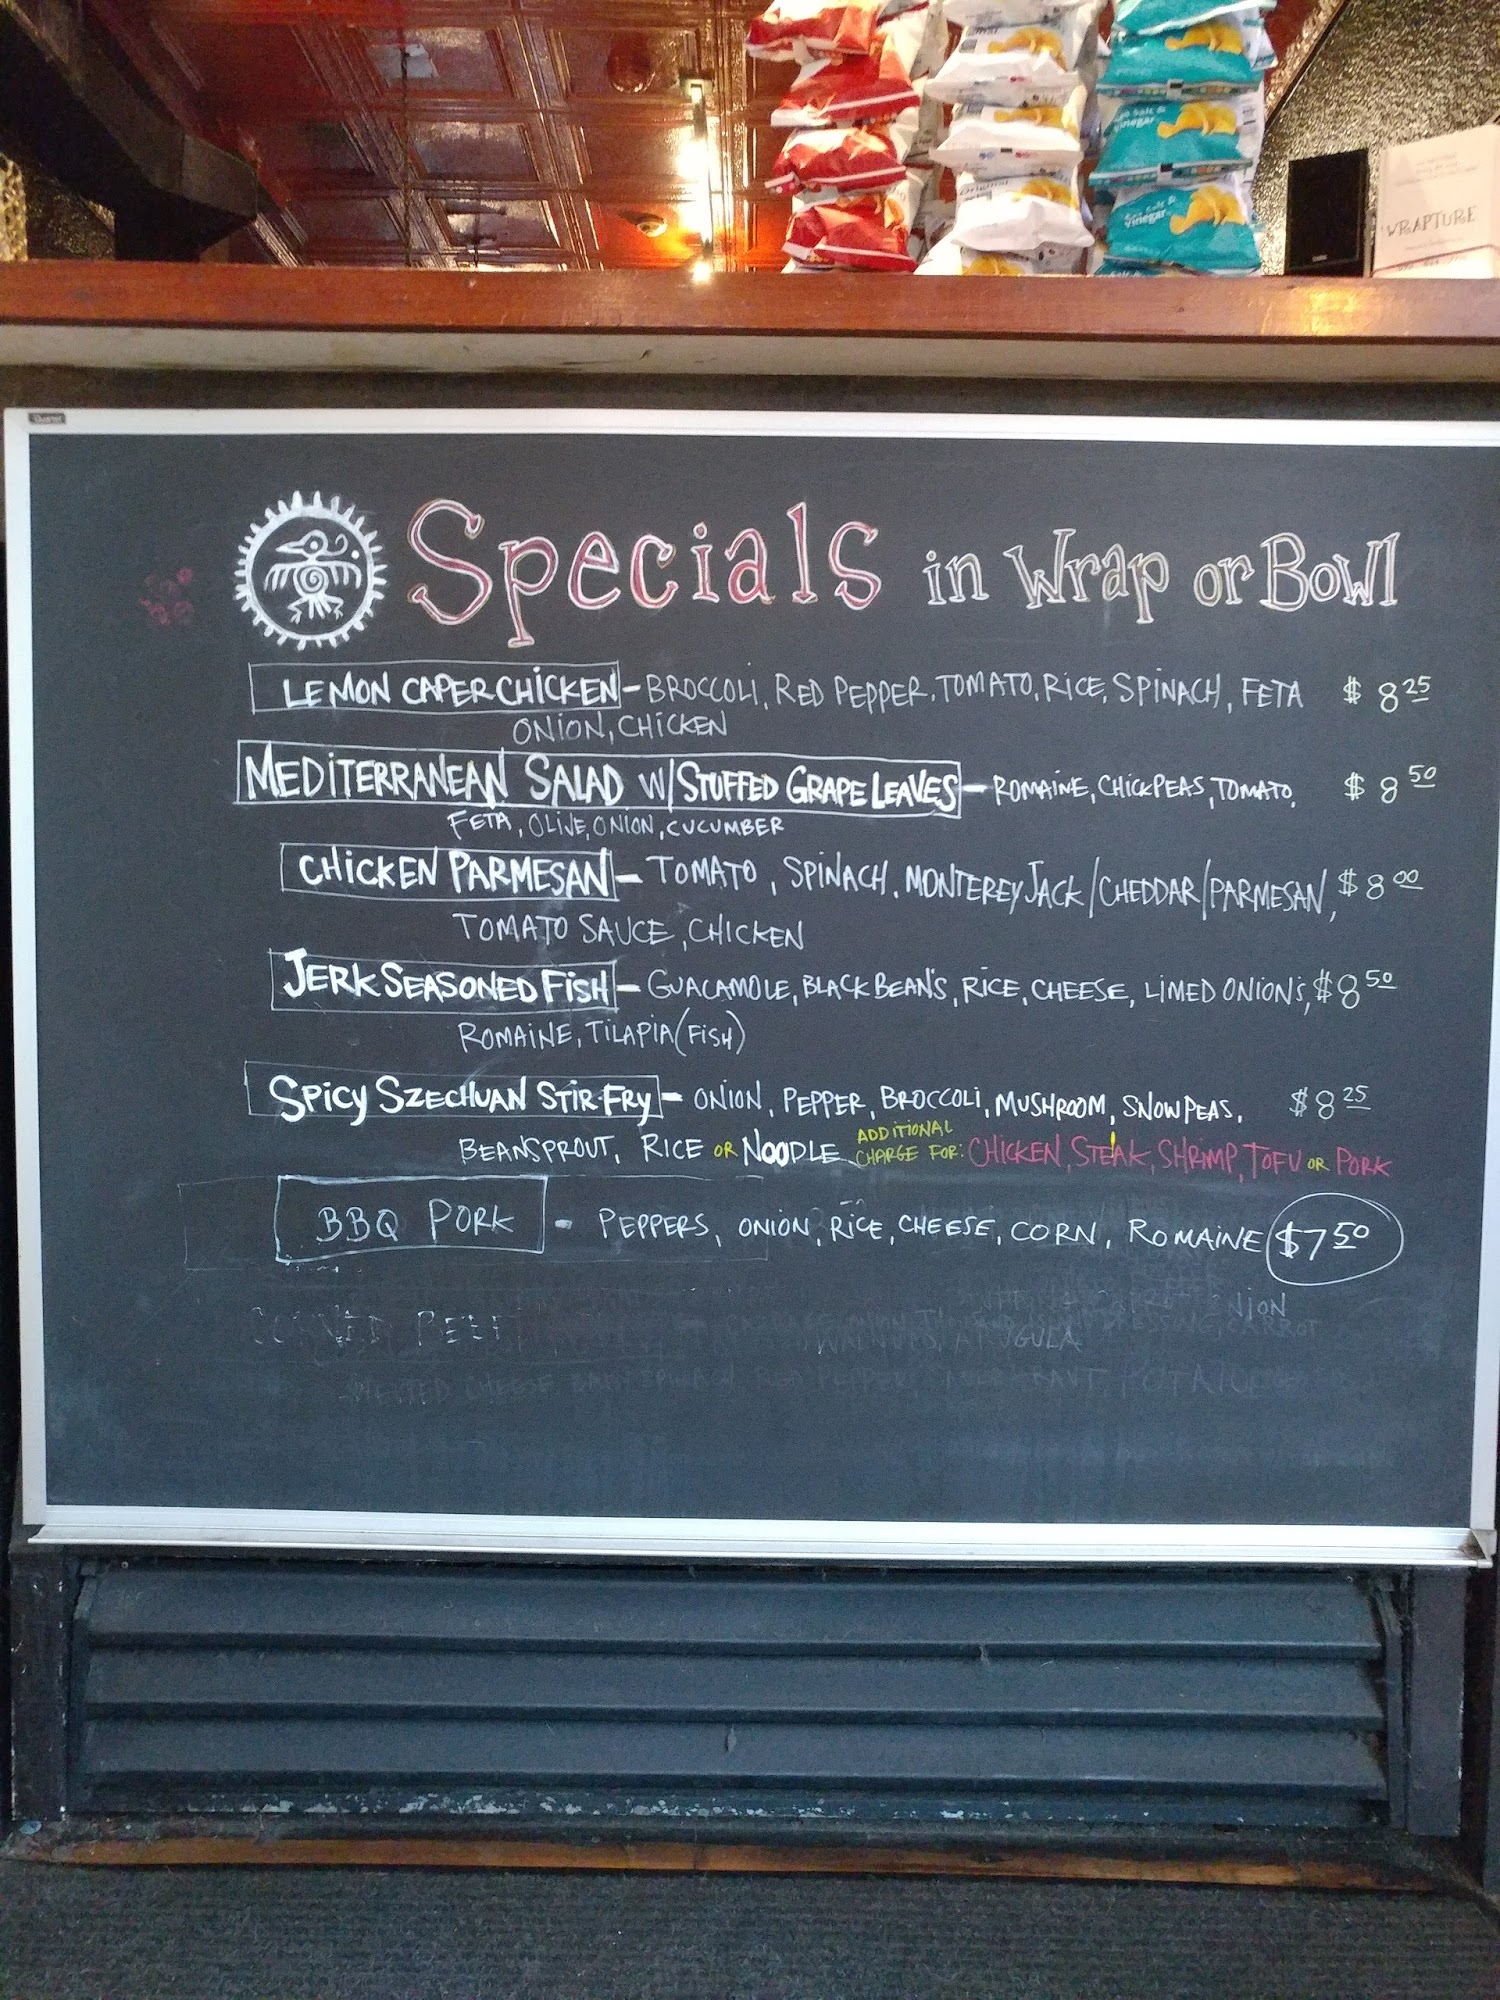 Sea Salt & vinegar
Original
Sea Salt & vinegar
WRAPTURE
Quartet
Specials in Wrap or Bowl
LEMON CAPER CHICKEN - BROCCOLI, RED PEPPER, TOMATO, RICE, SPINACH, FETA $8 25
ONION, CHICKEN
MEDITERRANEAN SALAD W/ STUFFED GRAPE LEAVES - ROMAINE, CHICKPEAS, TOMATO, $8 50
FETA, OLIVE, ONION, CUCUMBER
CHICKEN PARMESAN - TOMATO, SPINACH, MONTEREY JACK/CHEDDAR/PARMESAN, $8 00
TOMATO SAUCE, CHICKEN
JERK SEASONED FISH - GUACAMOLE, BLACK BEAN'S, RICE, CHEESE, LIMED ONIONS, $8 50
ROMAINE, TILAPIA (FISH)
SPICY SZECHUAN STIR FRY - ONION, PEPPER, BROCCOLI, MUSHROOM, SNOWPEAS, $8 25
BEANSPROUT, RICE OR NOODLE ADDITIONAL CHARGE FOR: CHICKEN, STEAK, SHRIMP, TOFU OR PORK
BBQ PORK - PEPPERS, ONION, RICE, CHEESE, CORN, ROMAINE $7 50
BEEF
ONION
CARROT
WALNUTS, ARUGULA
MELTED CHEESE BABY SPINACH RED PEPPER,